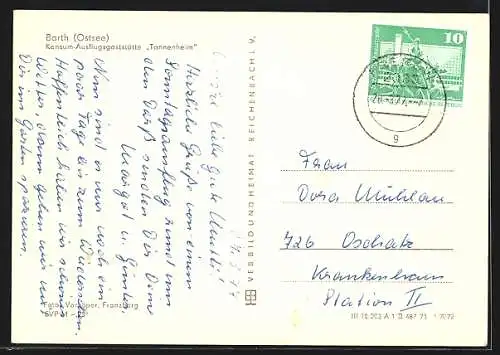 Barth (Ostsee)
Konsum-Ausflugsgaststätte „Tannenheim"
liebe gute Mutti!
Herzliche Grüße von einem
Sonntagsausflug rund um
den Darß senden Dir Deine
Margot u. Günter.
Nun sind es nur noch ein
paar Tage bis zum Wiedersehen.
Hoffentlich haben wir schönes
Wetter, dann gehen wir mit
Dir im Garten spazieren.
VERBILD UND HEIMAT REICHENBACH I. V.
10
g
Frau
Dora Mühlau
726 Oschatz
Krankenhaus
Station II
Foto: Vorpoper, Franzburg